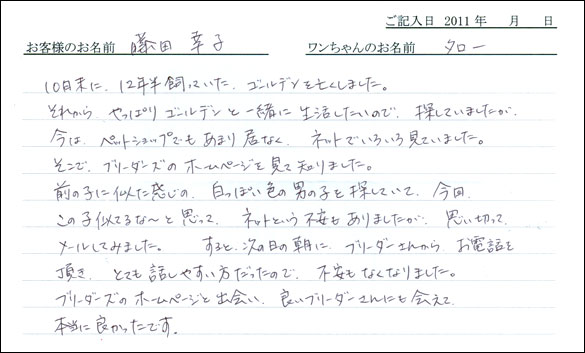 ご記入日 2011 年 月 日
お客様のお名前 藤田 幸子 ワンちゃんのお名前 タロー
10月末に、12年半飼っていた、ゴールデンを亡くしました。
それから、やっぱりゴールデンと一緒に生活したいので、探していましたが、
今は、ペットショップでもあまり居なく、ネットでいろいろ見ていました。
そこで、ブリーダーズのホームページを見て知りました。
前の子に似た感じの、白っぽい色の男の子を探していて、今回、
この子似てるな〜と思って、ネットという不安もありましたが、思い切って、
メールしてみました。 すると、次の日の朝に、ブリーダーさんから、お電話を
頂き、とても話しやすい方だったので、不安もなくなりました。
ブリーダーズのホームページと出会い、良いブリーダーさんにも会えて、
本当に良かったです。